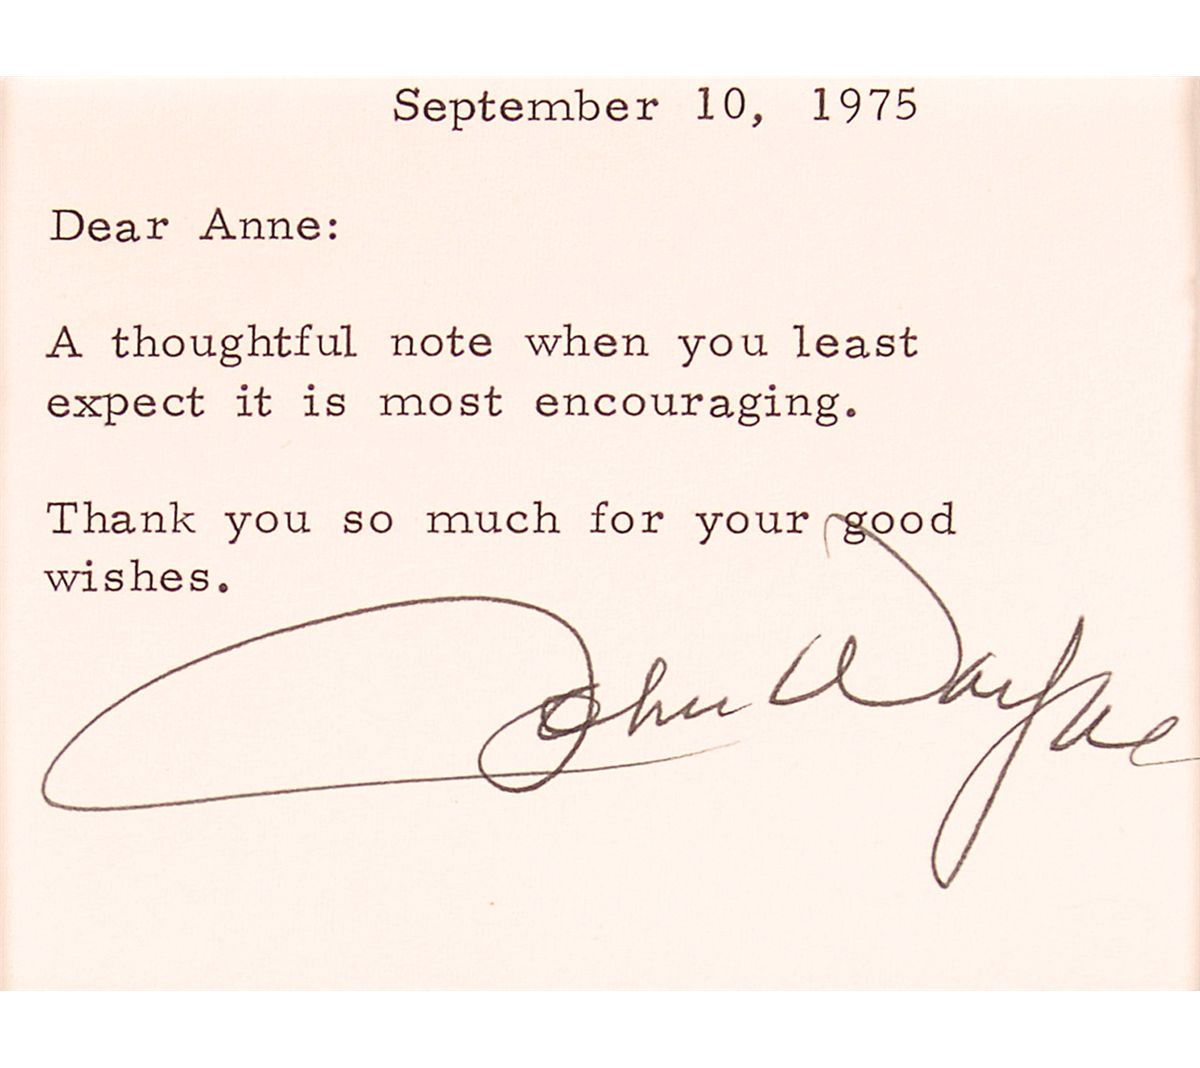 September 10, 1975
Dear Anne:
A thoughtful note when you least
expect it is most encouraging.
Thank you so much for your good
wishes.
John Wayne